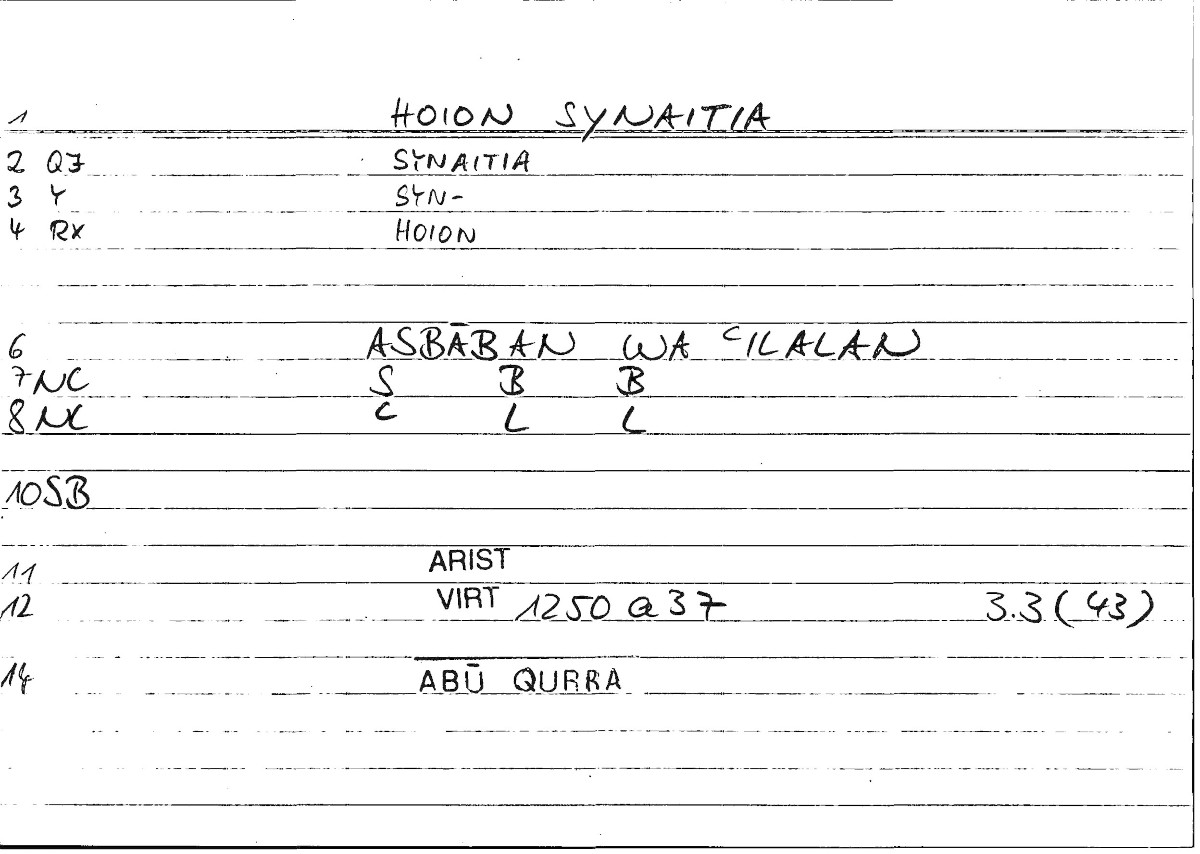 1 HOION SYNAITIA
2 QJ SYNAITIA
3 Y SYN-
4 RX HOION
6 ASBĀBAN WA ʿILALAN
7 NC S B B
8 NC ʿ L L
10 SB
11 ARIST
12 VIRT 1250 a 37 3.3 (43)
14 ABŪ QURRA